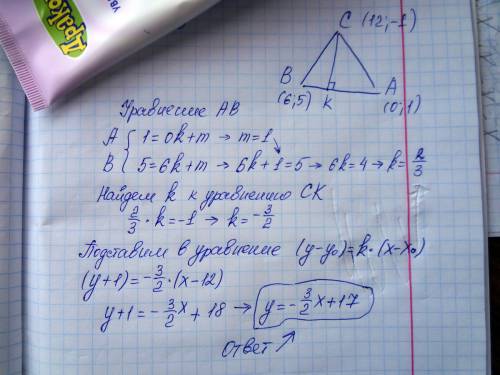 Дракo
C (12;-1)
B
(6;5)
K
A
(0;1)
Уравнение AB
A { 1=0k+m → m=1
B { 5=6k+m → 6k+1=5 → 6k=4 → k=2/3
Найдем k к уравнению CK
2/3·k=-1 → k=-3/2
Подставим в уравнение (y-y₀)=k·(x-x₀)
(y+1)=-3/2·(x-12)
y+1=-3/2x+18 → y=-3/2x+17
Ответ ↗